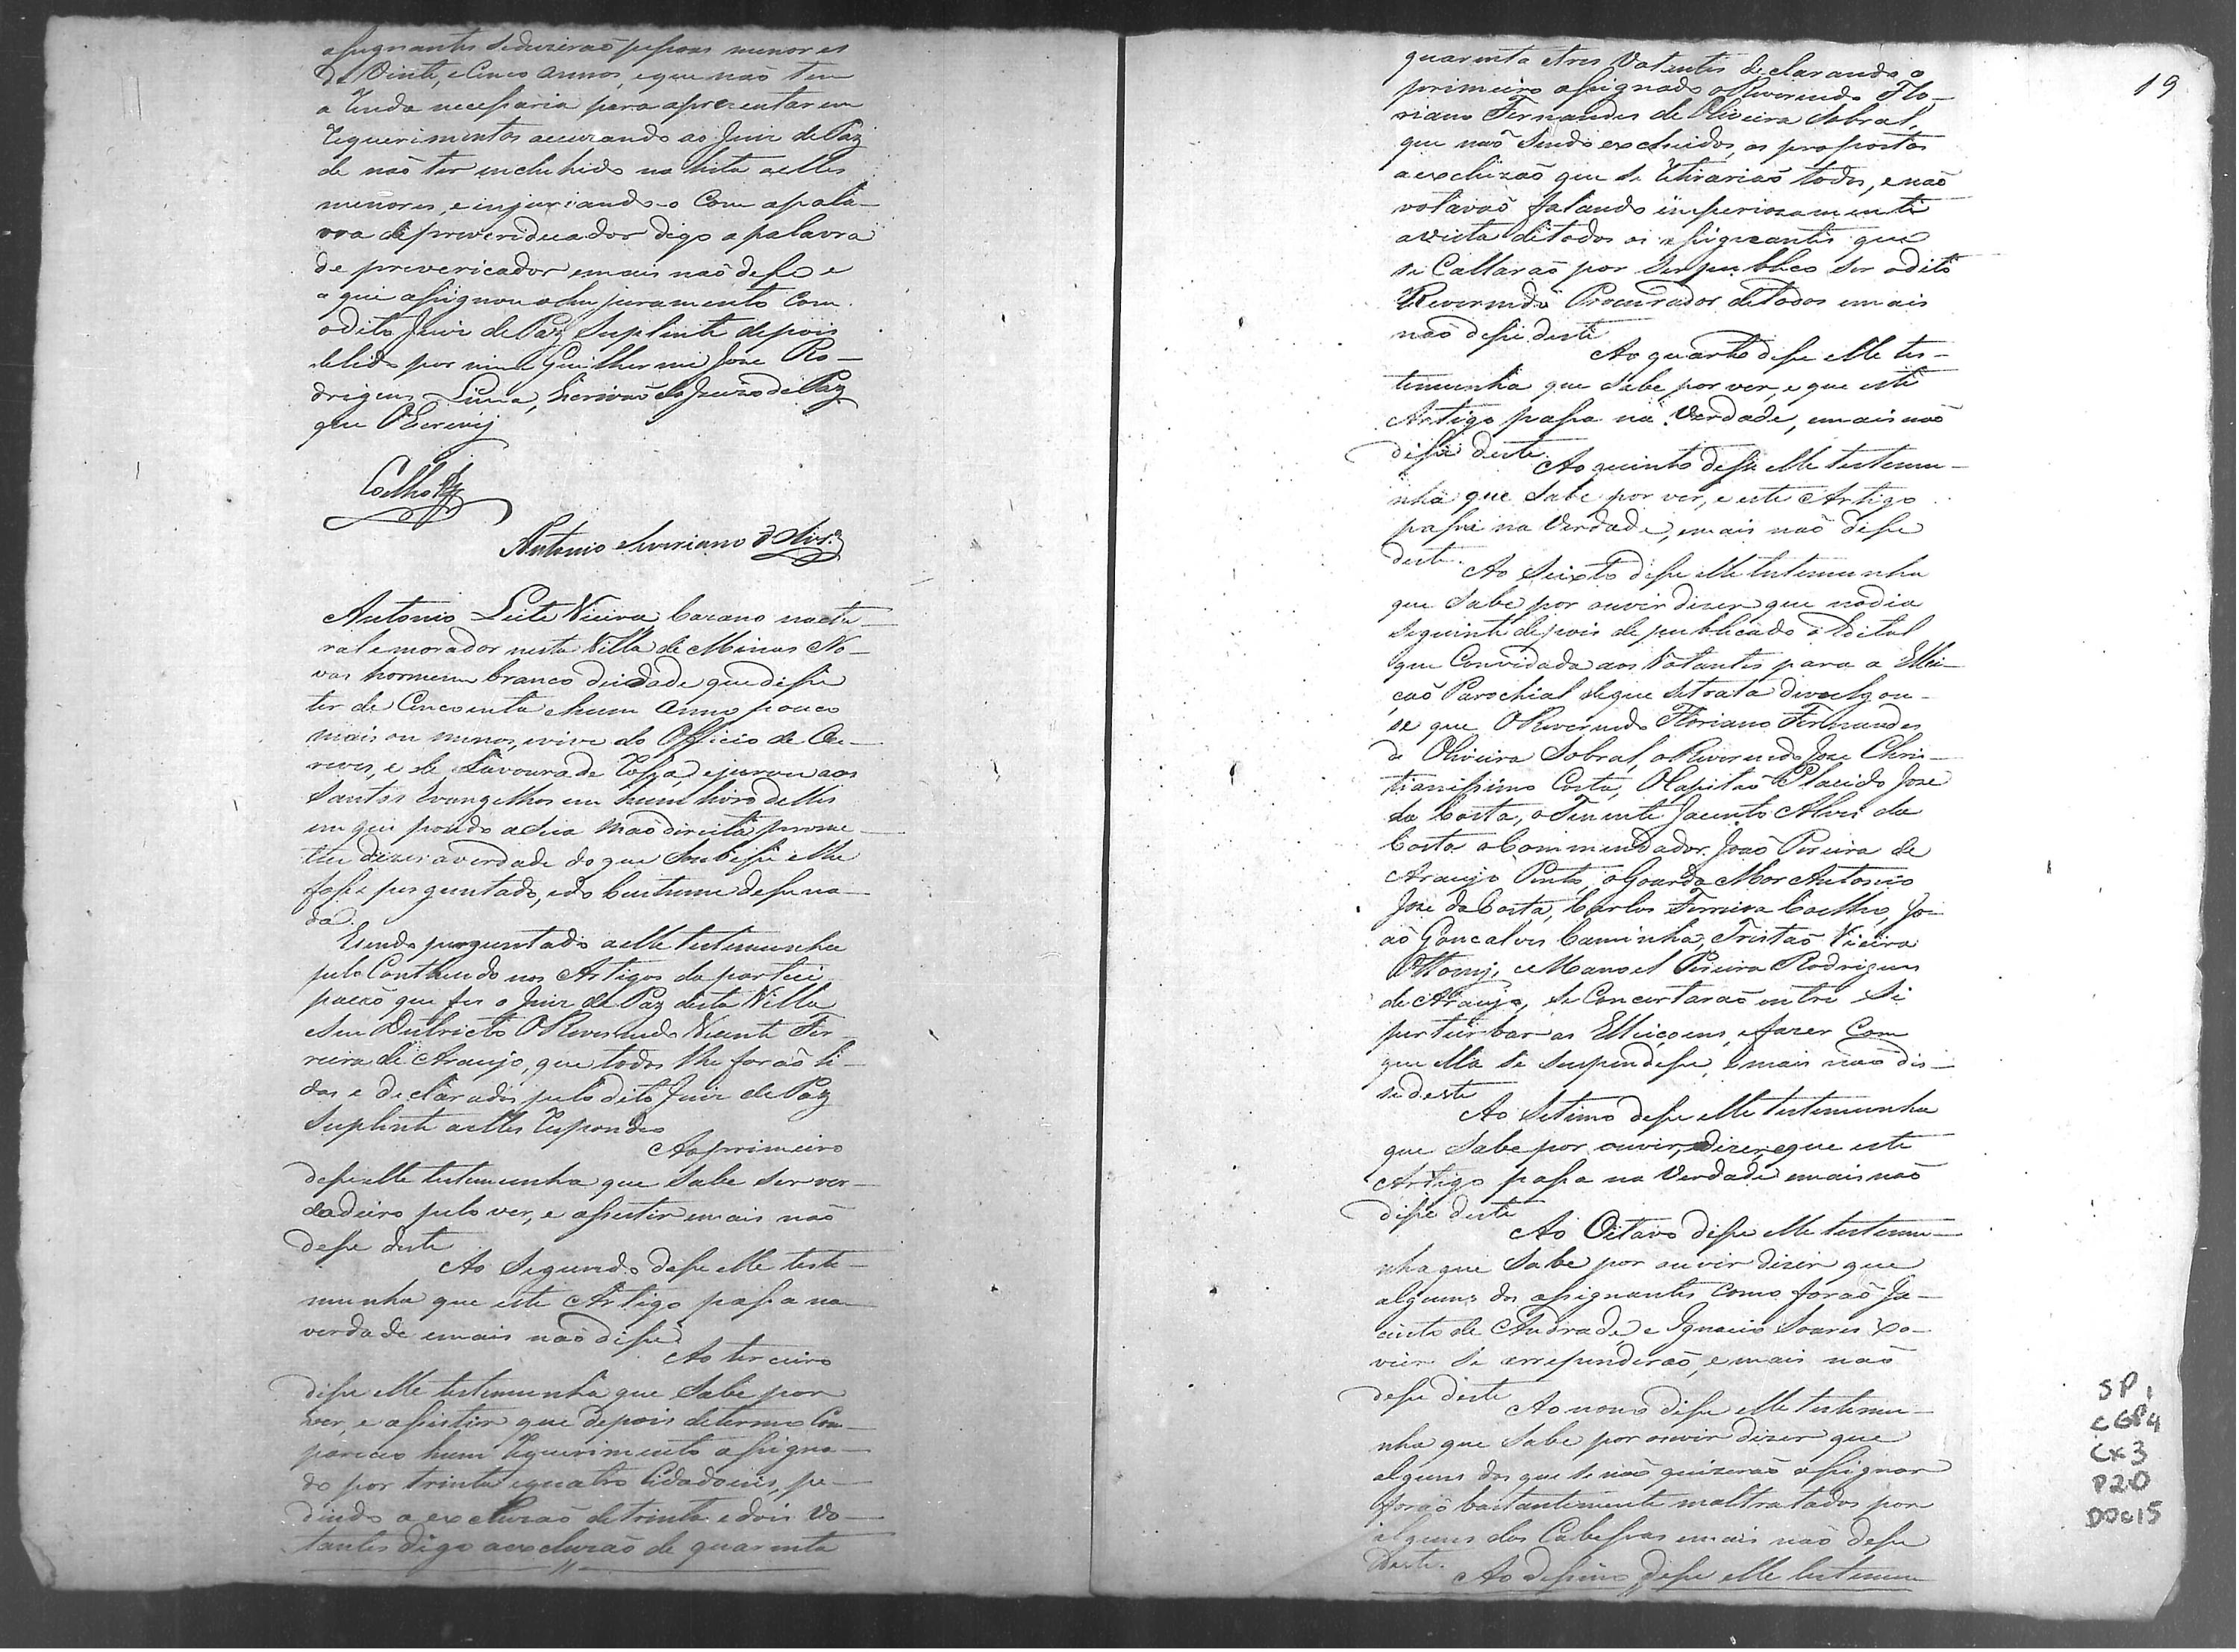 assignantes seduzirão pessoas menores
de Vinte, e Cinco annos, e que não tem
a renda necessaria para aprezentarem
requerimentos accuzando ao Juiz de Paz
de não ter incluhido na lista aelles
menores, e injuriando-o Com apala-
vra de preveridicador digo a palavra
de prevericador emais não disse e
a que assignou o seu juramento Com
odito Juiz de Paz Suplente depois
delido por mim Guilherme Jose Ro-
drigues Lima, Escrivão do Juizo de Paz
que OEscrevij
Coelho
Antonio Severiano d'Olivrª
Antonio Leite Vieira Cazano natu-
ral emorador nesta Villa de Minas No-
vas homem branco deidade que disse
ter de Cincoenta ehum Anno pouco
mais ou menos, evive do Officio de Ou-
rives, e de Lavoura de Rossa, ejurou aos
Santos Evangelhos em hum livro delles
em que pondo asua mão direita prome-
teu dizer averdade do que Soubesse elhe
fosse perguntado, edo Custume disse na-
da.
Esendo perguntado aelle testemunha
pelo Contheudo nos Artigos da partici
pação que fes o Juiz de Paz desta Villa
eSeu Destricto OReverendo Vicente Fer-
reira de Araujo, que todos lhe forão li-
dos e declarados pelo dito Juiz de Paz
Suplente aelles Respondeo
Ao primeiro
disse elle testemunha que Sabe ser ver-
dadeiro pelo ver, e assestir emais não
disse deste
Ao Segundo disse elle teste-
munha que este Artigo passa na
verdade emais não disse
Ao terceiro
disse elle testemunha que Sabe por
ver, e assistir que depois determo Com-
pareceo hum Requerimento assigna-
do por trinta equatro Cidadoens, pe-
dindo a excluzão detrinta edois Vo-
tantes digo aexcluzão de quarenta
19
quarenta etres Votantes declarando o
primeiro assignado oReverendo Flo-
riano Fernandes de Oliveira Sobral,
que não Sendo excluidos, os propostos
aexcluzão que se Retirarião todos, enão
votavão falando imperiozamente
avista detodos os assignantes que
se Callarão por Ser publico Ser odito
Reverendo Procurador detodos emais
não disse deste
Ao quarto disse elle tes-
temunha que Sabe por ver, e que este
Artigo passa na Verdade, emais não
disse deste
Ao quinto disse elle testemu-
nha que Sabe por ver, e este Artigo
passa na Verdade, emais não disse
deste.
Ao Seixto disse elle testemunha
que Sabe por ouvir dizer que nodia
Seguinte depois depublicado o Edital
que Convidada aos Votantes para a Ellei-
ção Parochial deque setrata divulgou-
se que OReverendo Floriano Fernandes
de Oliveira Sobral, oReverendo Jose Chris-
tianissimo Costa, OCapitão Placido Jose
da Costa, oTenente Jacinto Alves da
Costa oCommendador João Pereira de
Araujo Pinto, oGoarda Mor Antonio
Jose da Costa, Carlos Ferreira Coelho, Jo-
ão Goncalves Caminha, Tristão Vieira
Ottonij, eManoel Pereira Rodrigues
de Araujo, se Concertarão entre Si
perturbar as Elleiçoens, efazer Com
que ella se Suspendesse, emais não dis-
se deste
Ao Setimo disse elle testemunha
que Sabe por ouvir, dizer, eque este
Artigo passa na Verdade emais não
disse deste
Ao Oitavo disse elle testemu-
nha que Sabe por ouvir dizer que
alguns dos assignantes Como forão Ja-
cinto de Andrade, e Ignacio Soares Xa-
vier se arrependerão, emais não
disse deste
Ao nono disse elle testemu-
nha que Sabe por ouvir dizer que
alguns dos que se não quizerão assignar
forão bastantemente maltratados por
alguns dos Cabessas emais não disse
deste.
Ao dessimo disse elle testemu
SP 1
CGP4
CX3
P20
DOc15